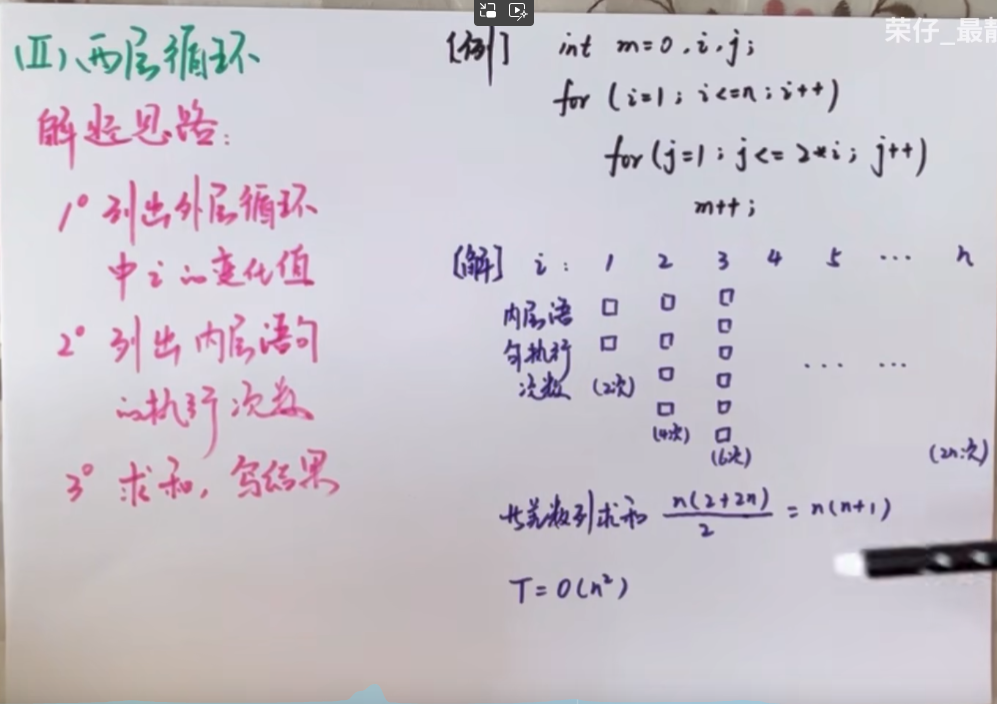 荣仔_最靓
(Ⅱ)、两层循环
解题思路:
1° 列出外层循环
中 i 的变化值
2° 列出内层语句
的执行次数
3° 求和,写结果
[例] int m=0,i,j;
for (i=1; i<=n; i++)
for (j=1; j<= 2*i; j++)
m++;
[解] i: 1 2 3 4 5 ... n
内层语
句执行
次数 (2次) (4次) (6次) ... ... (2n次)
等差数列求和 n(2+2n)/2 = n(n+1)
T = O(n²)